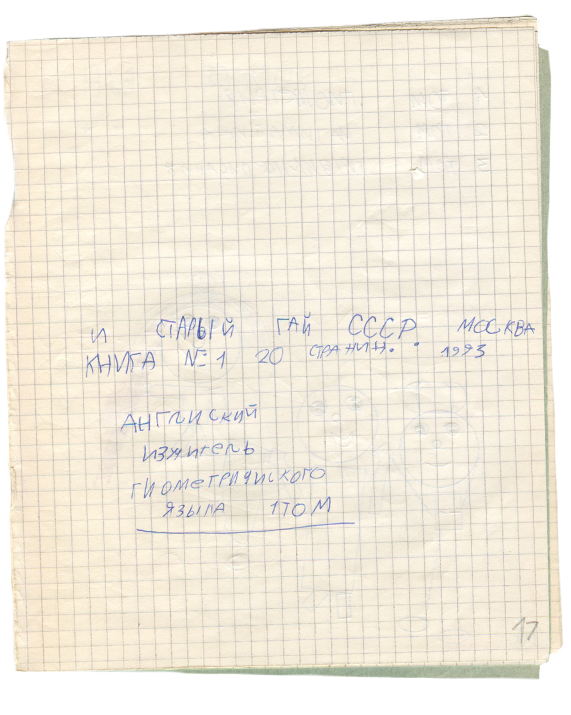 И СТАРЫЙ ГАЙ СССР МОСКВА
КНИГА № 1 20 СТРАНИН. . 1993
АНГЛИСКИЙ
ИЗЖИГЕЛЬ
ГИОМЕТРИЧИСКОГО
ЯЗЫКА 1ТОМ
17